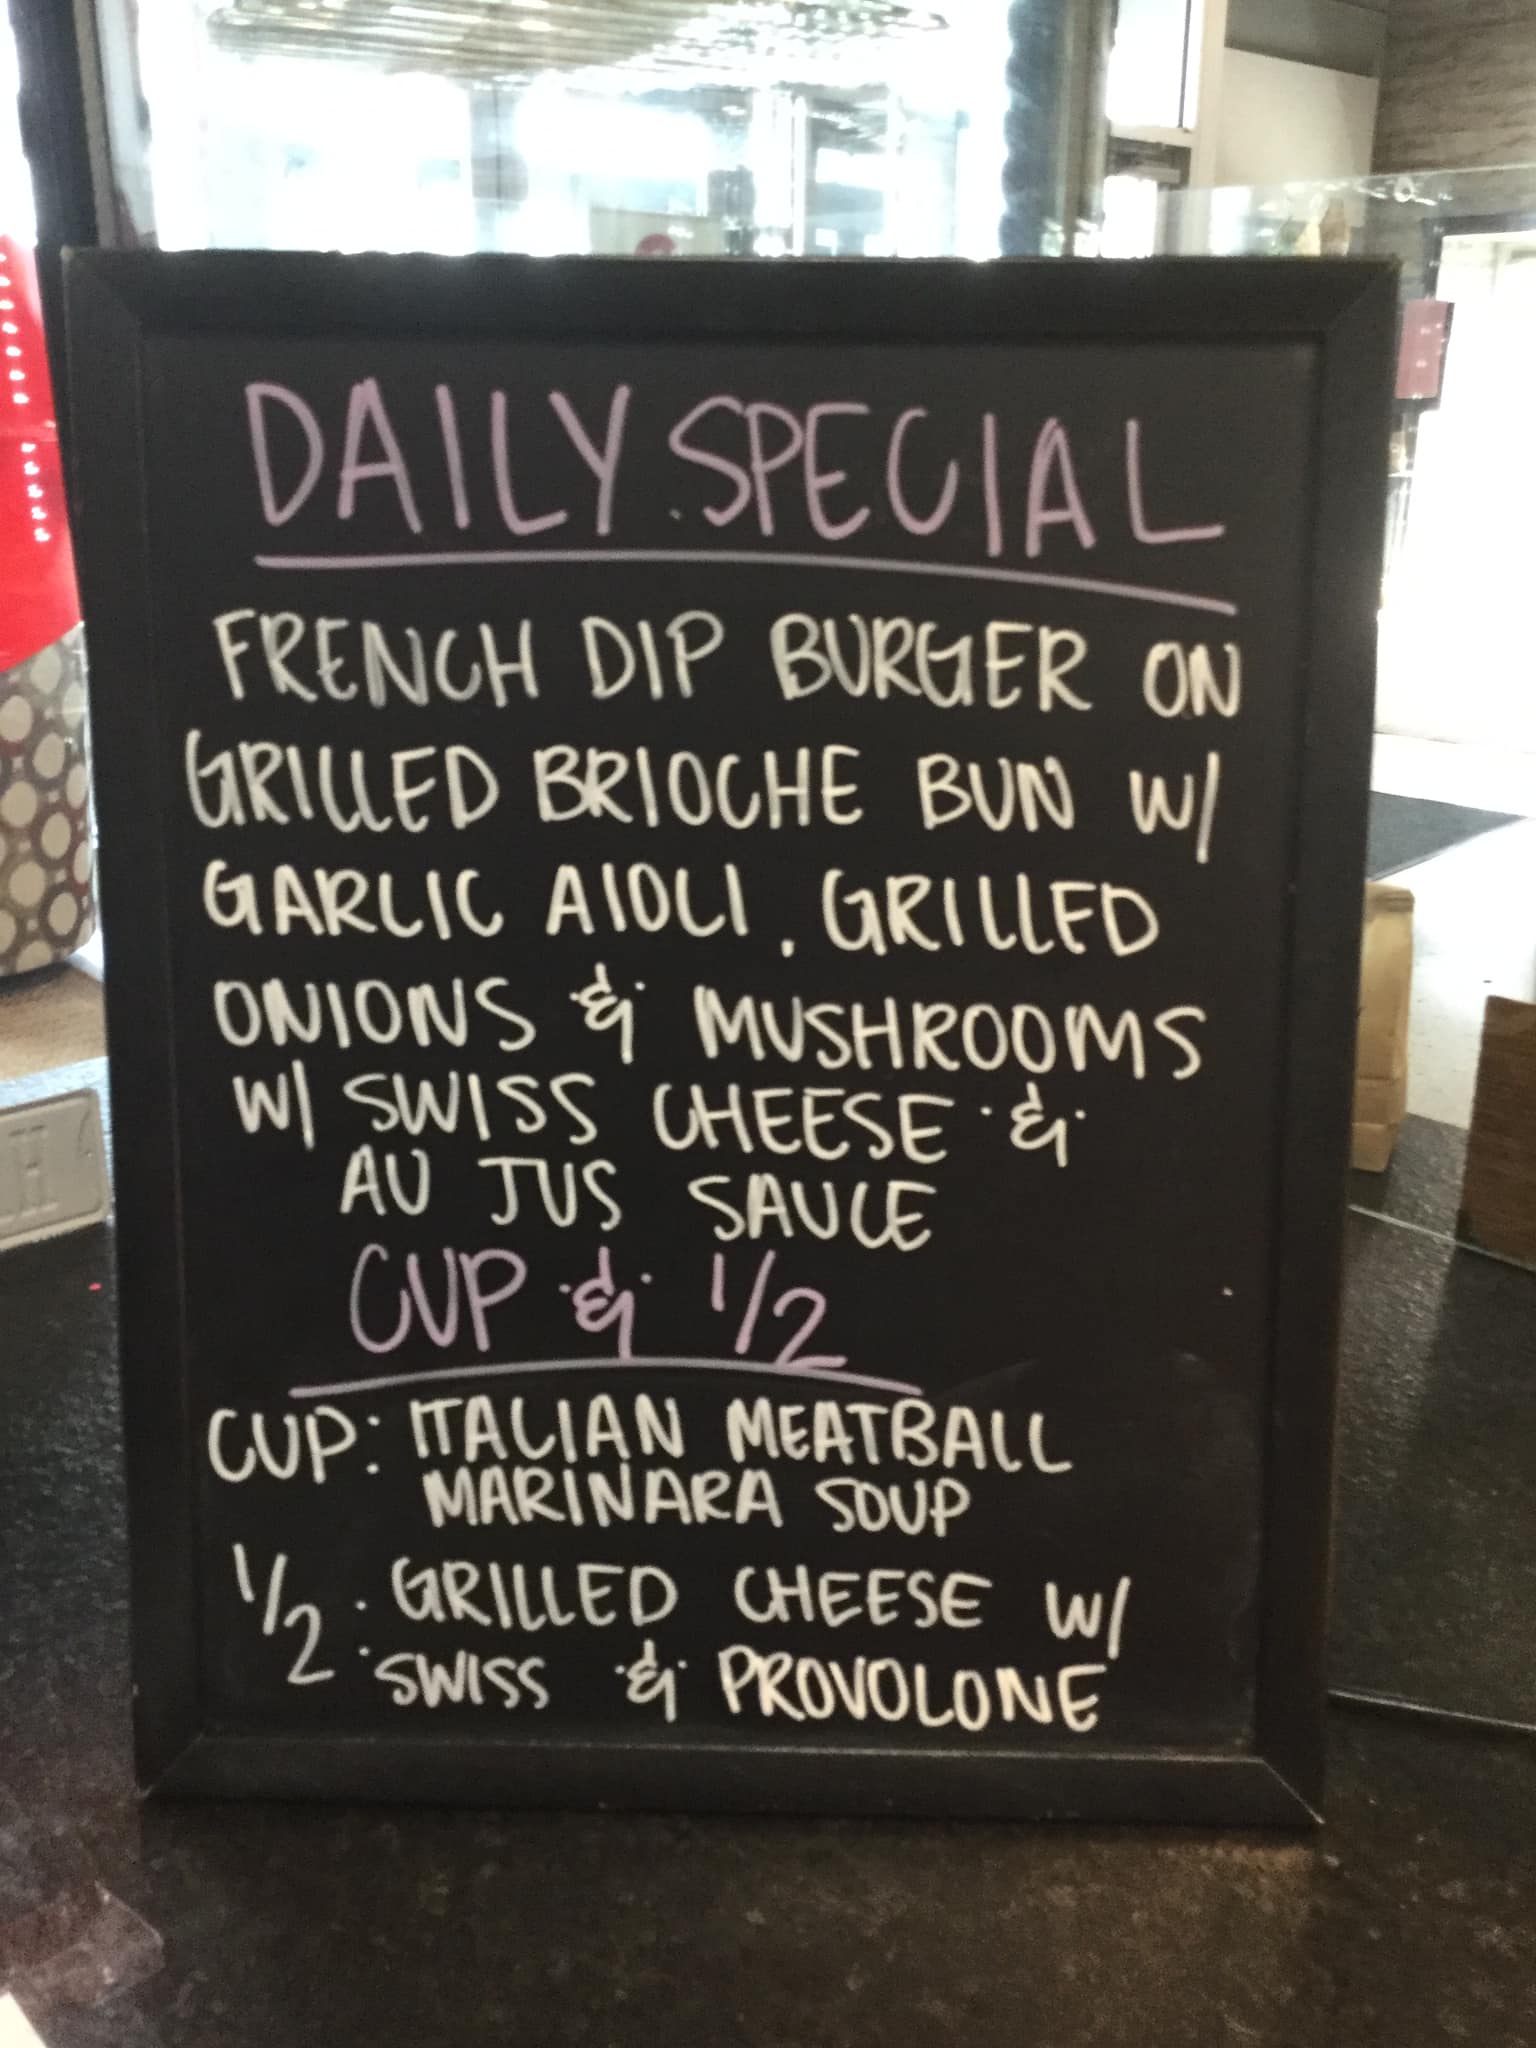 DAILY SPECIAL
FRENCH DIP BURGER ON
GRILLED BRIOCHE BUN W/
GARLIC AIOLI. GRILLED
ONIONS & MUSHROOMS
W/ SWISS CHEESE &
AU JUS SAUCE
CUP & 1/2
CUP: ITALIAN MEATBALL
MARINARA SOUP
1/2: GRILLED CHEESE W/
SWISS & PROVOLONE